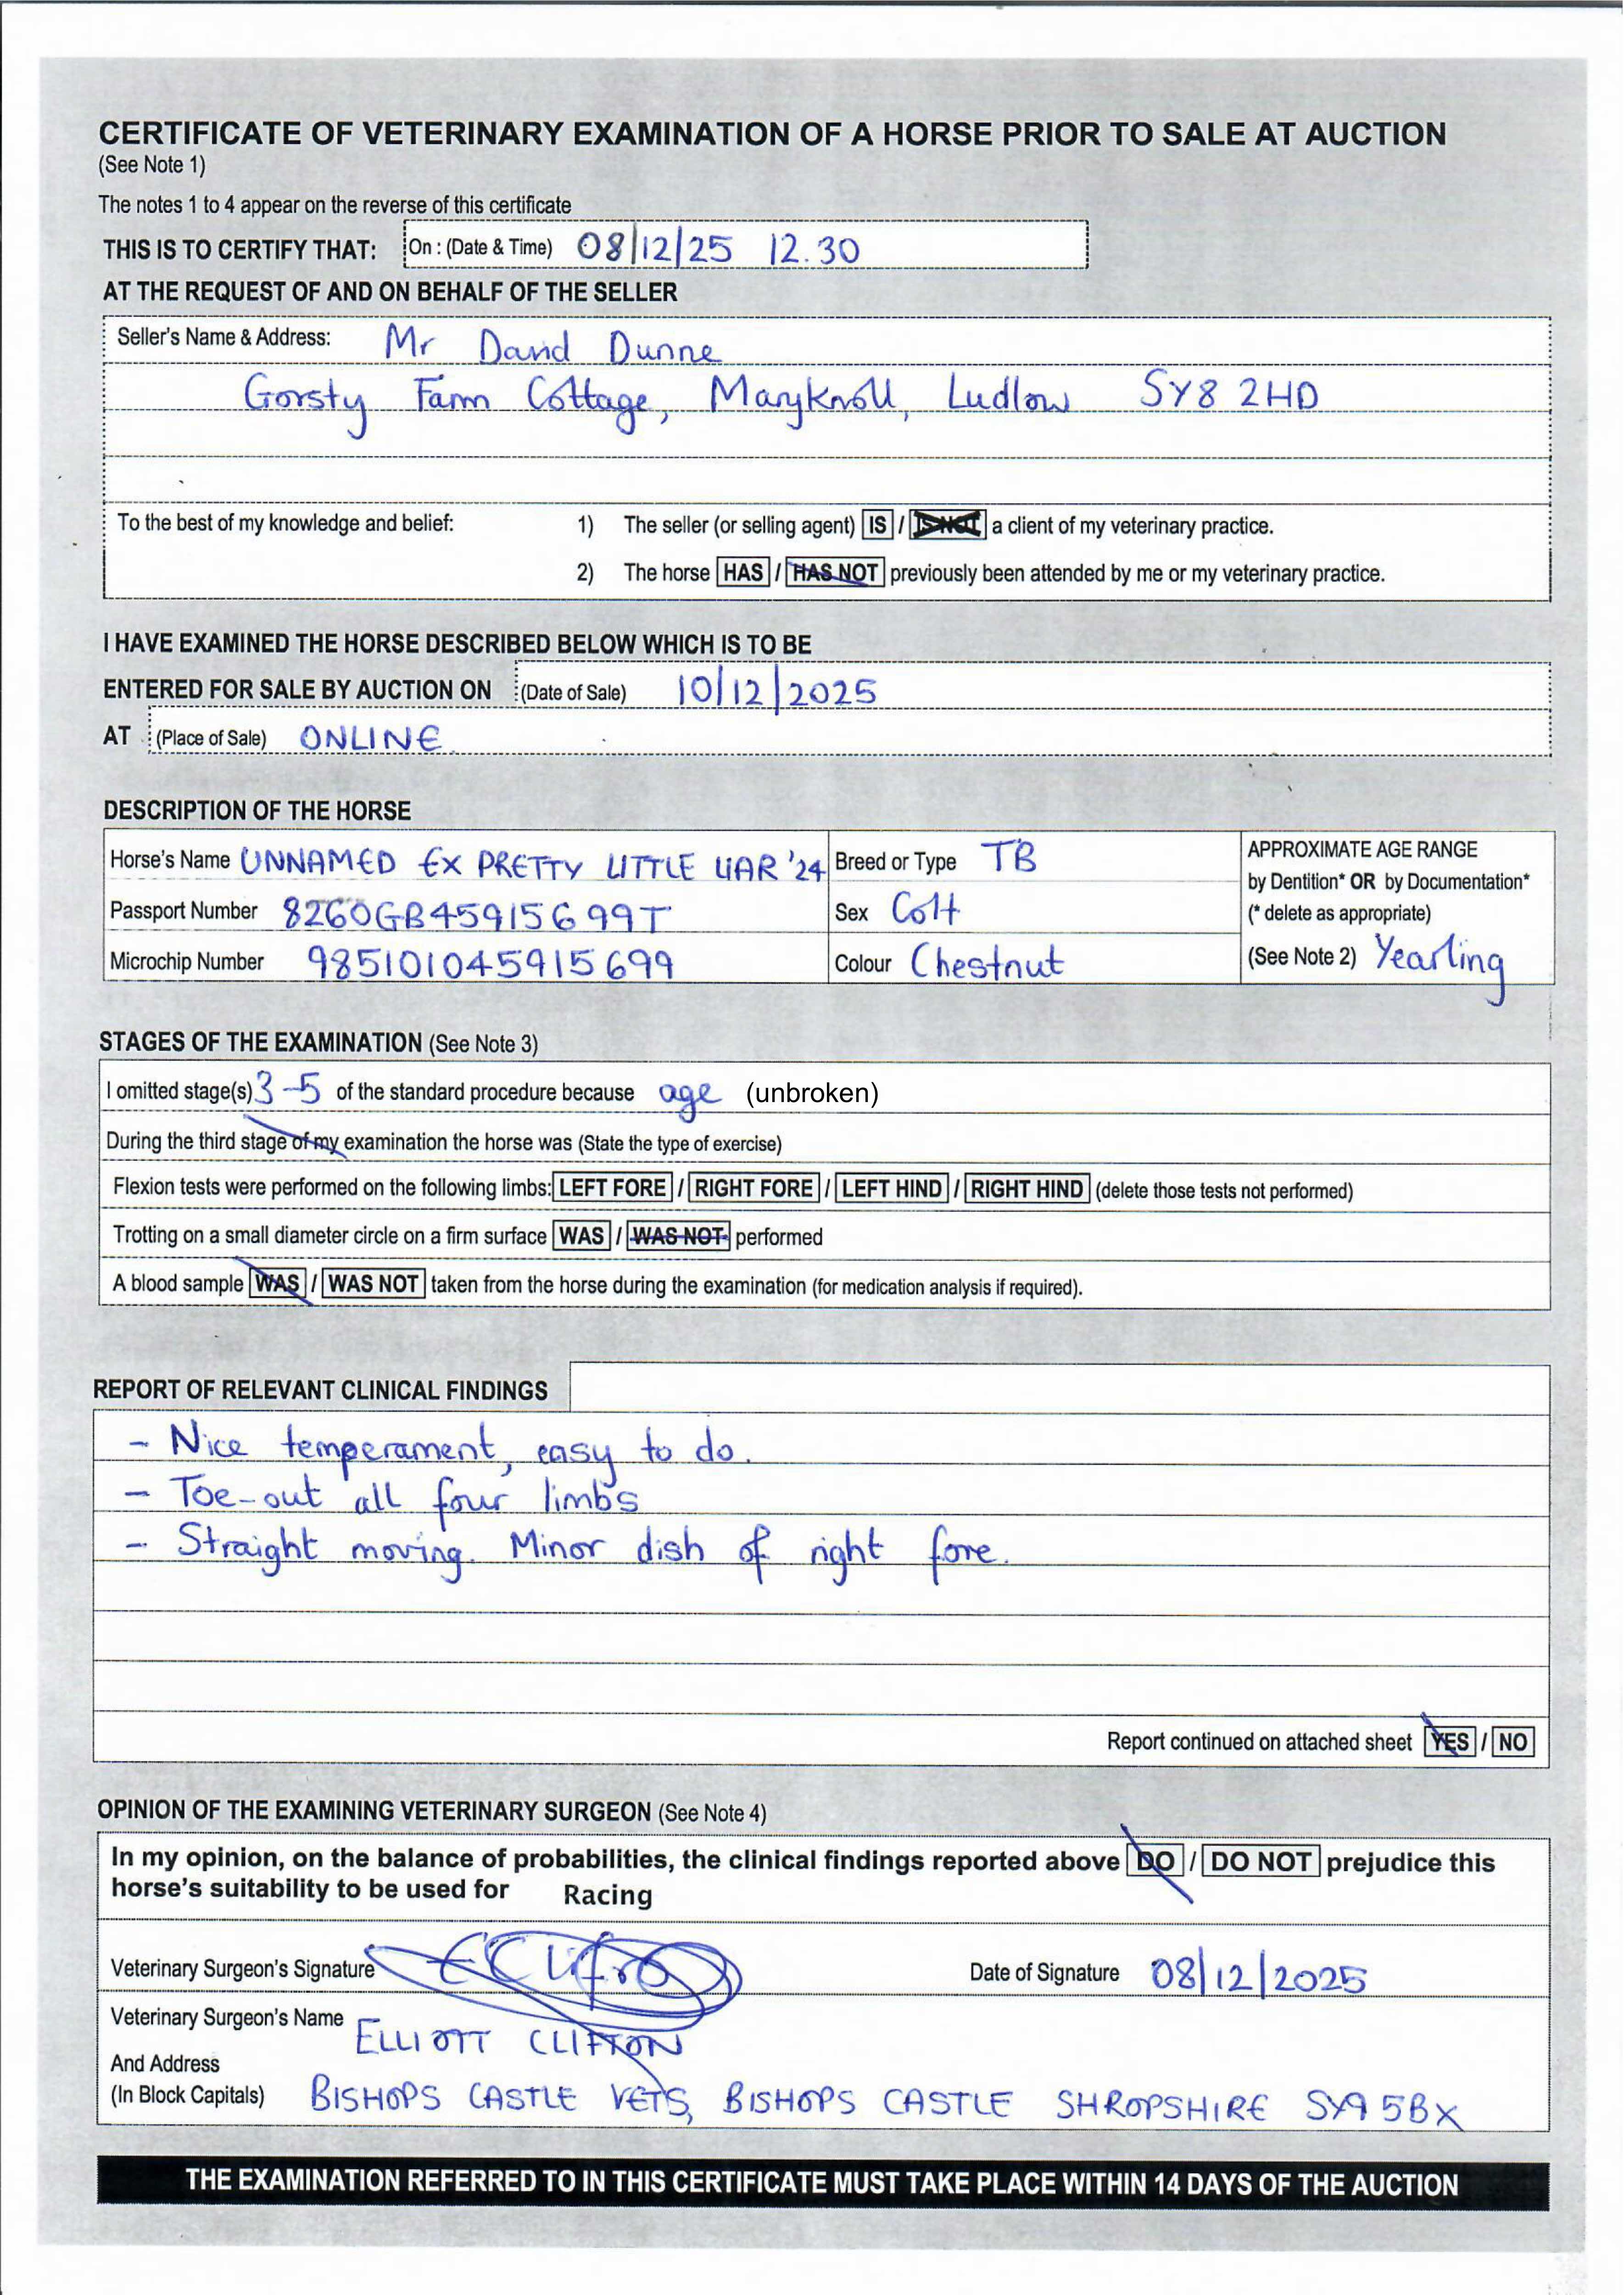 CERTIFICATE OF VETERINARY EXAMINATION OF A HORSE PRIOR TO SALE AT AUCTION
(See Note 1)
The notes 1 to 4 appear on the reverse of this certificate
THIS IS TO CERTIFY THAT: On : (Date & Time) 08/12/25 12.30
AT THE REQUEST OF AND ON BEHALF OF THE SELLER
Seller's Name & Address: Mr David Dunne
Gorsty Farm Cottage, Maryknoll, Ludlow SY8 2HD
To the best of my knowledge and belief: 1) The seller (or selling agent) IS / IS NOT a client of my veterinary practice.
2) The horse HAS / HAS NOT previously been attended by me or my veterinary practice.
I HAVE EXAMINED THE HORSE DESCRIBED BELOW WHICH IS TO BE
ENTERED FOR SALE BY AUCTION ON (Date of Sale) 10/12/2025
AT (Place of Sale) ONLINE
DESCRIPTION OF THE HORSE
Horse's Name UNNAMED EX PRETTY LITTLE LIAR '24 Breed or Type TB APPROXIMATE AGE RANGE
by Dentition* OR by Documentation*
Passport Number 8260GB45915699T Sex Colt (* delete as appropriate)
Microchip Number 985101045915699 Colour Chestnut (See Note 2) Yearling
STAGES OF THE EXAMINATION (See Note 3)
I omitted stage(s) 3-5 of the standard procedure because age (unbroken)
During the third stage of my examination the horse was (State the type of exercise)
Flexion tests were performed on the following limbs: LEFT FORE / RIGHT FORE / LEFT HIND / RIGHT HIND (delete those tests not performed)
Trotting on a small diameter circle on a firm surface WAS / WAS NOT performed
A blood sample WAS / WAS NOT taken from the horse during the examination (for medication analysis if required).
REPORT OF RELEVANT CLINICAL FINDINGS
- Nice temperament, easy to do.
- Toe-out all four limbs
- Straight moving. Minor dish of right fore.
Report continued on attached sheet YES / NO
OPINION OF THE EXAMINING VETERINARY SURGEON (See Note 4)
In my opinion, on the balance of probabilities, the clinical findings reported above DO / DO NOT prejudice this
horse's suitability to be used for Racing
Veterinary Surgeon's Signature EClifton Date of Signature 08/12/2025
Veterinary Surgeon's Name ELLIOTT CLIFTON
And Address
(In Block Capitals) BISHOPS CASTLE VETS, BISHOPS CASTLE SHROPSHIRE SY9 5BX
THE EXAMINATION REFERRED TO IN THIS CERTIFICATE MUST TAKE PLACE WITHIN 14 DAYS OF THE AUCTION